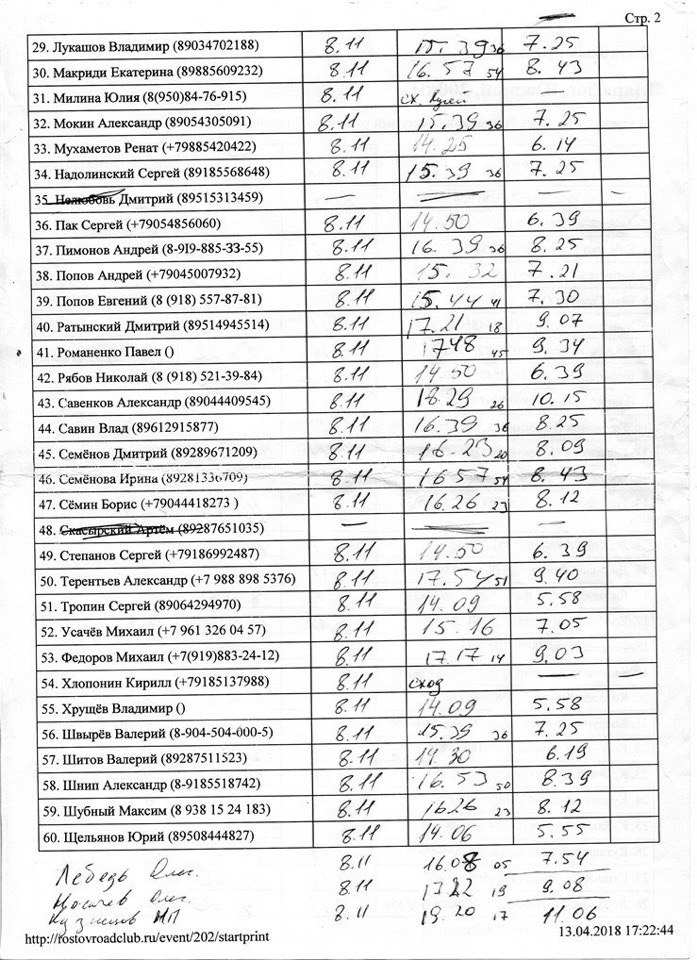 Стр. 2
29. Лукашов Владимир (89034702188) 8.11 15.39 36 7.25
30. Макриди Екатерина (89885609232) 8.11 16.57 54 8.43
31. Милина Юлия (8(950)84-76-915) 8.11 сх.
32. Мокин Александр (89054305091) 8.11 15.39 36 7.25
33. Мухаметов Ренат (+79885420422) 8.11 14.25 6.14
34. Надолинский Сергей (89185568648) 8.11 15.39 36 7.25
35. Нелюбовь Дмитрий (89515313459) — — — —
36. Пак Сергей (+79054856060) 8.11 14.50 6.39
37. Пимонов Андрей (8-9I9-885-33-55) 8.11 16.39 36 8.25
38. Попов Андрей (+79045007932) 8.11 15.32 7.21
39. Попов Евгений (8 (918) 557-87-81) 8.11 15.44 41 7.30
40. Ратынский Дмитрий (89514945514) 8.11 17.21 18 9.07
41. Романенко Павел () 8.11 1748 45 9.34
42. Рябов Николай (8 (918) 521-39-84) 8.11 14.50 6.39
43. Савенков Александр (89044409545) 8.11 18.29 26 10.15
44. Савин Влад (89612915877) 8.11 16.39 36 8.25
45. Семёнов Дмитрий (89289671209) 8.11 16.23 20 8.09
46. Семёнова Ирина (89281336709) 8.11 16 57 54 8.43
47. Сёмин Борис (+79044418273 ) 8.11 16.26 23 8.12
48. Скасырский Артём (89287651035) — — —
49. Степанов Сергей (+79186992487) 8.11 14.50 6.39
50. Терентьев Александр (+7 988 898 5376) 8.11 17.54 51 9.40
51. Тропин Сергей (89064294970) 8.11 14.09 5.58
52. Усачёв Михаил (+7 961 326 04 57) 8.11 15.16 7.05
53. Федоров Михаил (+7(919)883-24-12) 8.11 17.17 14 9.03
54. Хлопонин Кирилл (+79185137988) 8.11 сход — —
55. Хрущёв Владимир () 8.11 14.09 5.58
56. Швырёв Валерий (8-904-504-000-5) 8.11 15.39 36 7.25
57. Шитов Валерий (89287511523) 8.11 14.30 6.19
58. Шнип Александр (8-9185518742) 8.11 16.53 50 8.39
59. Шубный Максим (8 938 15 24 183) 8.11 1626 23 8.12
60. Щельянов Юрий (89508444827) 8.11 14.06 5.55
Лебедь Олег. 8.11 16.08 05 7.54
Носачев Олег. 8.11 1722 19 9.08
Кузнецов НП 8.11 19.20 17 11.06
http://rostovroadclub.ru/event/202/startprint 13.04.2018 17:22:44